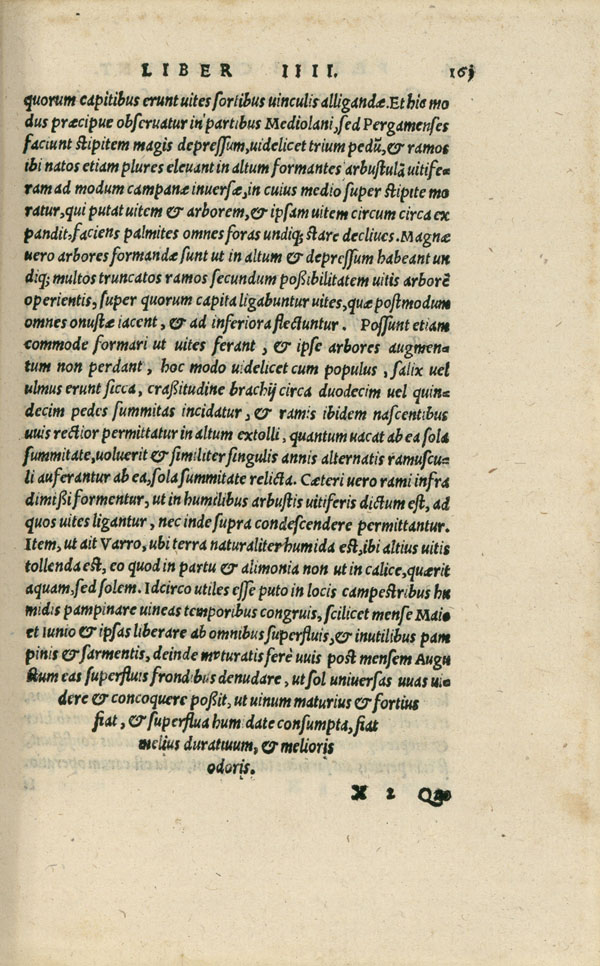 LIBER IIII. 163
quorum capitibus erunt uites fortibus uinculis alligandæ. Et hic mo
dus præcipue obseruatur in partibus Mediolani, sed Pergamenses
faciunt stipitem magis depressum, uidelicet trium pedũ, & ramos
ibi natos etiam plures eleuant in altum formantes arbustulã uitife⸗
ram ad modum campanæ inuersæ, in cuius medio super stipite mo
ratur, qui putat uitem & arborem, & ipsam uitem circum circa ex
pandit, faciens palmites omnes foras undiq; stare decliues. Magnæ
uero arbores formandæ sunt ut in altum & depressum habeant un
diq; multos truncatos ramos secundum poßibilitatem uitis arborẽ
operientis, super quorum capita ligabuntur uites, quæ postmodum
omnes onustæ iacent, & ad inferiora flectuntur. Possunt etiam
commode formari ut uites ferant, & ipse arbores augmen⸗
tum non perdant, hoc modo uidelicet cum populus, salix uel
ulmus erunt sicca, craßitudine brachij circa duodecim uel quin⸗
decim pedes summitas incidatur, & ramis ibidem nascentibus
uuis rectior permittatur in altum extolli, quantum uacat ab ea sola
summitate, uoluerit & similiter singulis annis alternatis ramuscu⸗
li auferantur ab ea, sola summitate relicta. Cæteri uero rami infra
dimißi formentur, ut in humilibus arbustis uitiferis dictum est, ad
quos uites ligantur, nec inde supra condescendere permittantur.
Item, ut ait Varro, ubi terra naturaliter humida est, ibi altius uitis
tollenda est, eo quod in partu & alimonia non ut in calice, quærit
aquam, sed solem. Idcirco utiles esse puto in locis campestribus hu
midis pampinare uineas temporibus congruis, scilicet mense Maio
et Iunio & ipsas liberare ab omnibus superfluis, & inutilibus pam
pinis & sarmentis, deinde maturatis ferè uuis post mensem Augu
stum eas superfluis frondibus denudare, ut sol uniuersas uuas ui⸗
dere & concoquere poßit, ut uinum maturius & fortius
fiat, & superflua humiditate consumpta, fiat
melius duratiuum, & melioris
odoris.
X 2